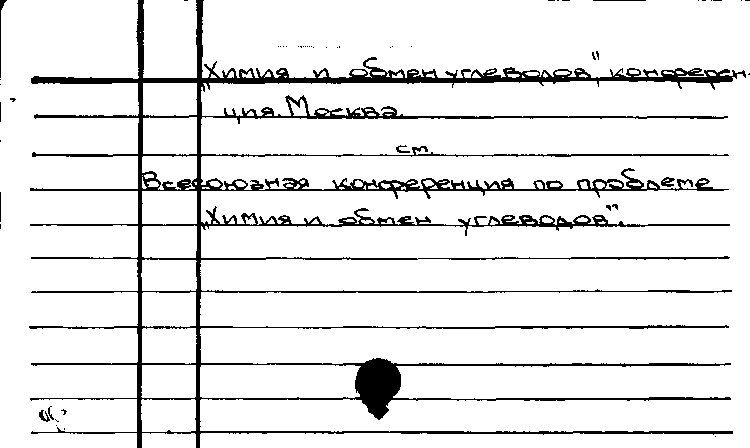 „Химия и обмен углеводов" конферен-
ция. Москва.
см.
Всесоюзная конференция по проблеме
„Химия и обмен углеводов".